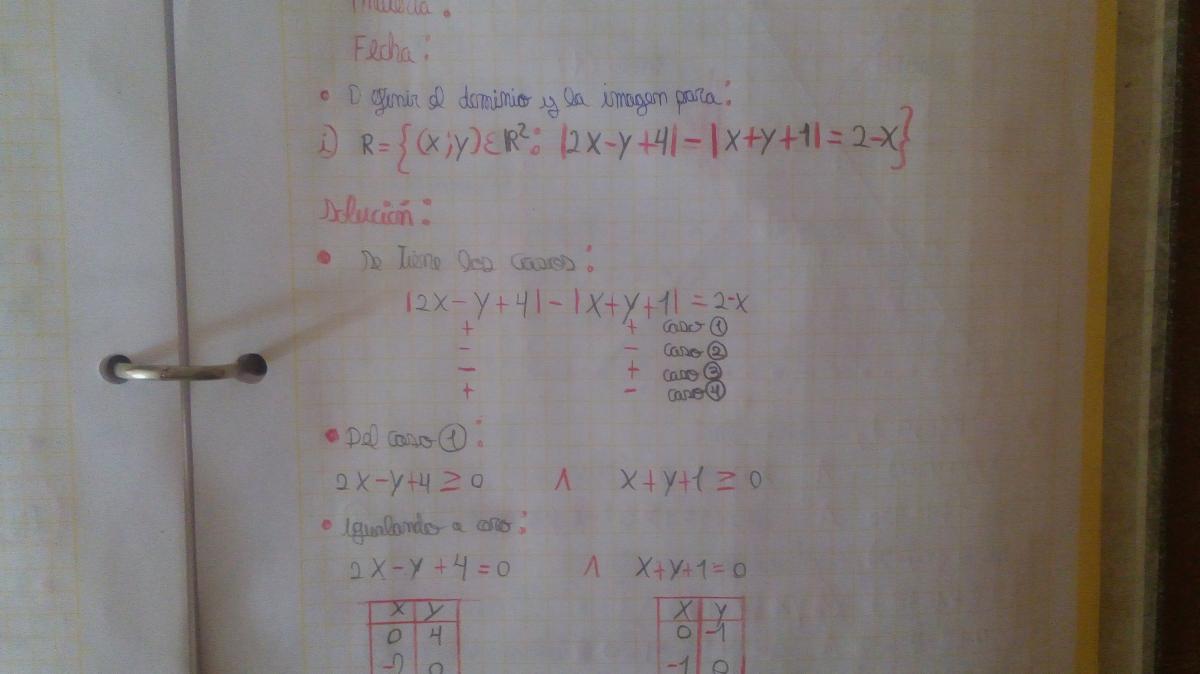 Materia :
Fecha :
• Definir el dominio y la imagen para :
i) R = {(x;y) ε ℝ²: |2X-y+4| - |X+y+1| = 2-X}
Solución :
• Se tiene los casos :
|2X-y+4| - |X+y+1| = 2-X
+ + caso ①
- - caso ②
- + caso ③
+ - caso ④
• Del caso ① :
2X-y+4 ≥ 0 ∧ X+y+1 ≥ 0
• Igualando a cero :
2X-y+4=0 ∧ X+y+1=0
X y X y
0 4 0 -1
-2 0 -1 0